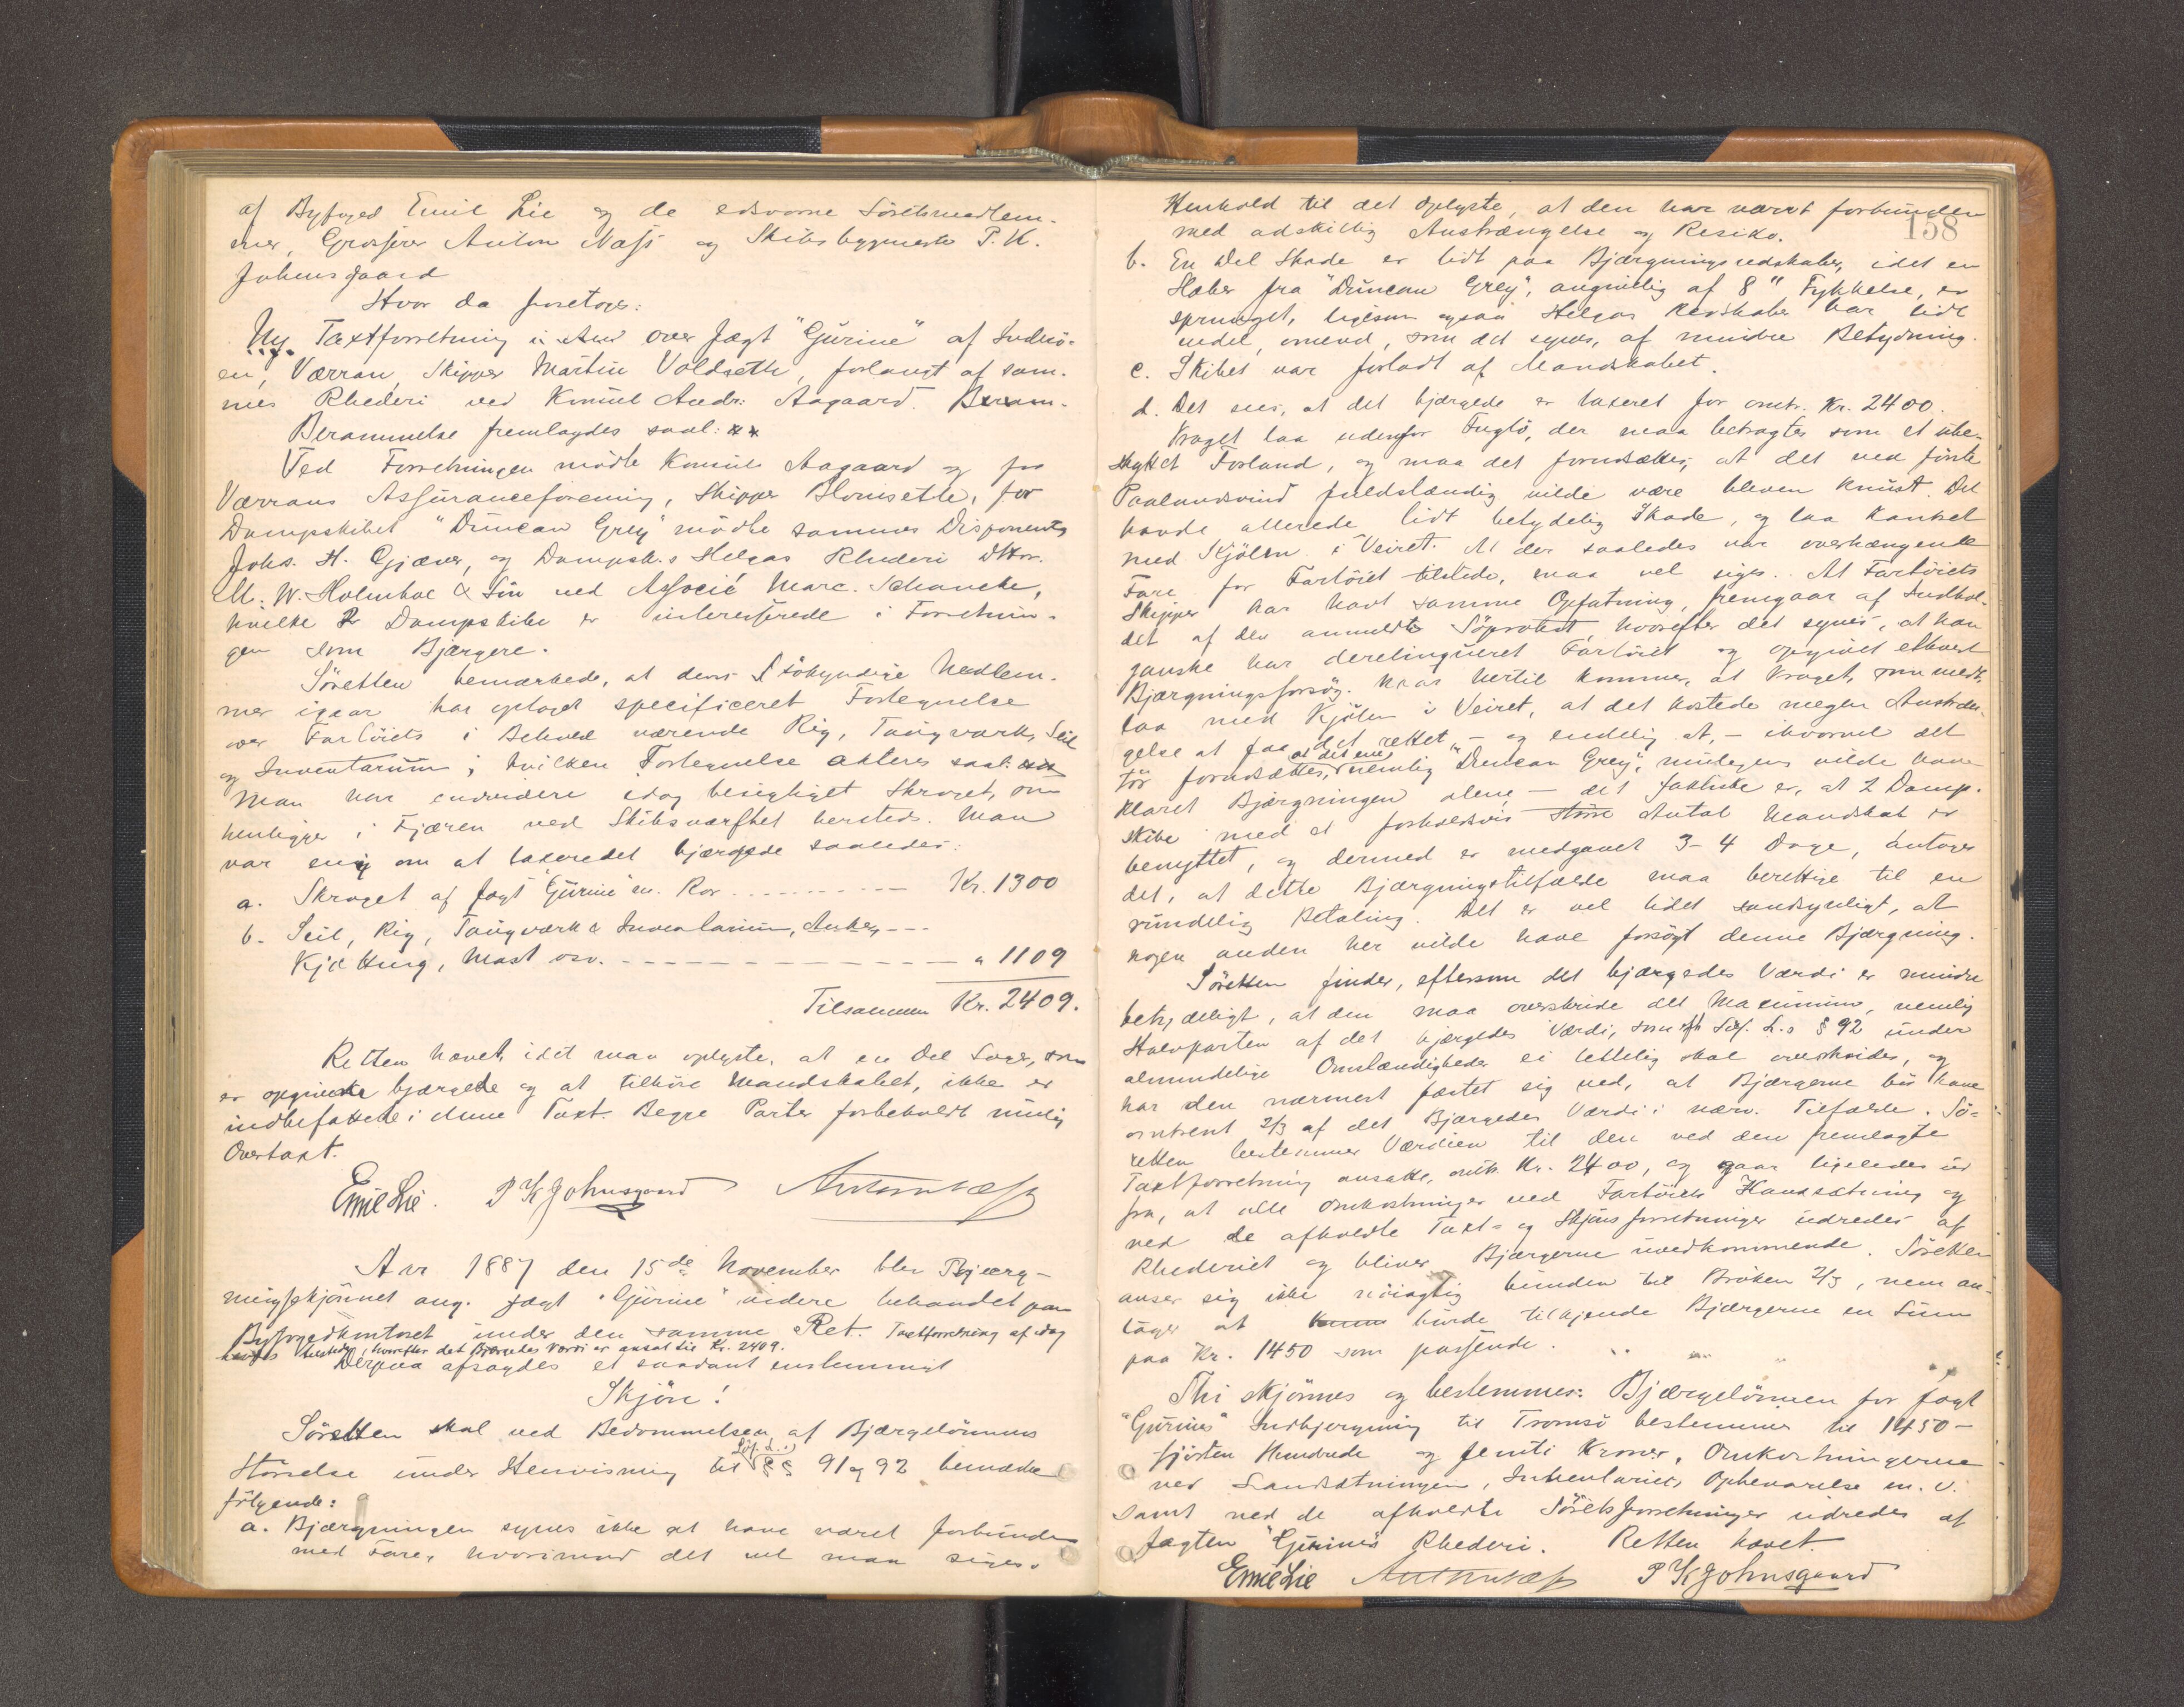 af Byfoged Emil Lie og de edsvorne Söretsmedlem-
mer, Grosserer Anton Næss og Skibsbygmester P. K.
Johnsgaard
Hvor da foretoges:
Ny Taxtforretning i over Jagt "Gurine" af Inderö-
en, Værran, Skipper Martin Voldsette, forlangt af sam-
mes Rhederi ved Konsul Andr. Aagaard.
Berammelse fremlagdes saal:
Ved Forretningen mödte Konsul Aagaard og for
Værrans Assuranceforening, Skipper, for
Dampskibet "Duncan Grey" mödte sammes Disponent
Johs. H. Gjæver, og Dampsk.s Helgas Rhederi
M. W. Holmboe & Sön ved Associé Marc. Schancke,
hvilke 2 Dampskibe er interesserede i Forretnin-
gen som Bjærgere.
Söretten bemærkede, at dens sökyndige Medlem-
mer igaar har optaget specificeret Fortegnelse
over Fartöiets i Behold værende Rig, Taugværk, Seil
og Inventarium; hvilken Fortegnelse akteres saal:
Man har endvidere idag besigtiget Skroget, som
henligger i Fjæren ved Skibsværftet hersteds. Man
var enig om at taxere det bjærgede saaledes:
a. Skroget af Jagt "Gurine" m. Ror - - - - Kr. 1300
b. Seil, Rig, Taugværk & Inventarium, Anker, - - -
Kjetting, Mast osv. - - - - - - - - - " 1109
Tilsammen Kr. 2409.
Retten hævet, idet man oplyste, at en Del Sager, som
er opgivet bjærgede og at tilhöre Mandskabet, ikke er
indbefattede i denne Taxt. Begge Parter forbeholdt mulig
Overtaxt.
Emil Lie. P K Johnsgaard Anton Næss
Aar 1887 den 15de November blev Bjærg-
ningsskjönnet ang. Jagt "Gurine" videre behandlet paa
Byfogedkontoret under den samme Ret. Taxtforretning af idag
havdes tilstede, hvorefter det Bjærgedes Værdi er ansat til Kr. 2409.
Derpaa afsagdes et saadant enstemmigt
Skjön!
Söretten skal ved Bedömmelsen af Bjærgelönnens
Söf. L.s
Störrelse under Henvisning til §§ 91 og 92 bemærke
fölgende:
a. Bjærgningen synes ikke at have været forbunden
med Fare, hvorimod det vel maa siges i
158
Henhold til det oplyste, at den har været forbunden
med adskillig Anstrængelse og Resiko.
b. En Del Skade er lidt paa Bjærgningsredskaber, idet en
Slæber fra "Duncan Grey", angivelig af 8" Tykkelse, er
sprunget, ligesom ogsaa Helgas Redskaber har lidt
endel, omend, som det synes, af mindre Betydning.
c. Skibet var forladt af Mandskabet.
d. Det sees, at det bjærgede er taxeret for omtr. Kr. 2400.
Vraget laa udenfor Fuglö, der maa betragtes som et ube-
skyttet Forland, og maa det forudsættes, at det ved förste
Paalandsvind fuldstændig vilde være bleven knust. Det
havde allerede lidt betydelig Skade, og laa kantret
med Kjölen i Veiret. At der saaledes var overhængende
Fare for Fartöiet tilstede, maa vel siges. At Fartöiets
Skipper har havt samme Opfatning, fremgaar af Indhol-
det af den anmeldte Söprotest, hvorefter det synes, at han
ganske har derelinqueret Fartöiet og opgivet ethvert
Bjærgningsforsög. Naar hertil kommer, at Vraget, som medt.
laa med Kjölen i Veiret, at det kostede megen Anstræn-
gelse at faa det rettet, - og endelig at, - ihvorvel det
at det ene
tör forudsættes, nemlig "Duncan Grey", muligens vilde have
klaret Bjærgningen alene - det faktiske er, at 2 Damp-
skibe med et forholdsvis större Antal Mandskab er
benyttet, og dermed er medgaaet 3-4 Dage, antages
det, at dette Bjærgningstilfælde maa berettige til en
rundelig Betaling. Det er vel lidet sandsynligt, at
nogen anden her vilde have forsögt denne Bjærgning.
Söretten finder, eftersom det bjærgedes Værdi er mindre
betydeligt, at den maa overskride det Maximum, nemlig
Halvparten af det bjærgedes Værdi, som efter Söf. L.s § 92 under
almindelige Omstændigheder ei lettelig skal overskrides, og
har den nærmest fæstet sig ved, at Bjærgerne bör have
omtrent 2/3 af det Bjærgedes Værdi i nærv. Tilfælde. Sö-
retten bestemmer Værdien til den ved den fremlagte
Taxtforretning ansatte, omtr. Kr. 2400, og gaar ligeledes ud
fra, at alle Omkostninger ved Fartöiets Ilandsætning og
ved de afholdte Taxt- og Skjönsforretninger udredes af
Rhederiet og bliver Bjærgerne uvedkommende. Söretten
anser sig ikke nöiagtig bunden til Bröken 2/3, men an-
tager at burde tilkjende Bjærgerne en Sum
paa Kr. 1450 som passende.
Thi skjönnes og bestemmes: Bjærgelönnen for Jagt
"Gurines" Indbjergning til Tromsö bestemmes til 1450 -
fjorten Hundrede og femti Kroner. Omkostningerne
ved Landsætningen, Inventariets Opbevarelse m. v.
samt ved de afholdte Söretsforretninger udredes af
Jagten "Gurine"s Rhederi. Retten hævet.
Emil Lie Anton Næss P K Johnsgaard